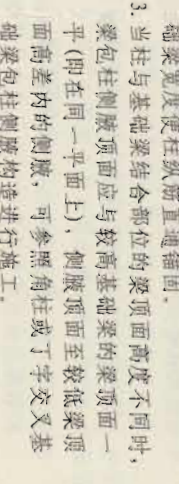 础梁宽度使柱纵筋直通锚固。
3. 当柱与基础梁结合部位的梁顶面高度不同时，
梁包柱侧腋顶面应与较高基础梁的梁顶面一
平(即在同一平面上)，侧腋顶面至较低梁顶
面高差内的侧腋，可参照角柱或丁字交叉基
础梁包柱侧腋构造进行施工。